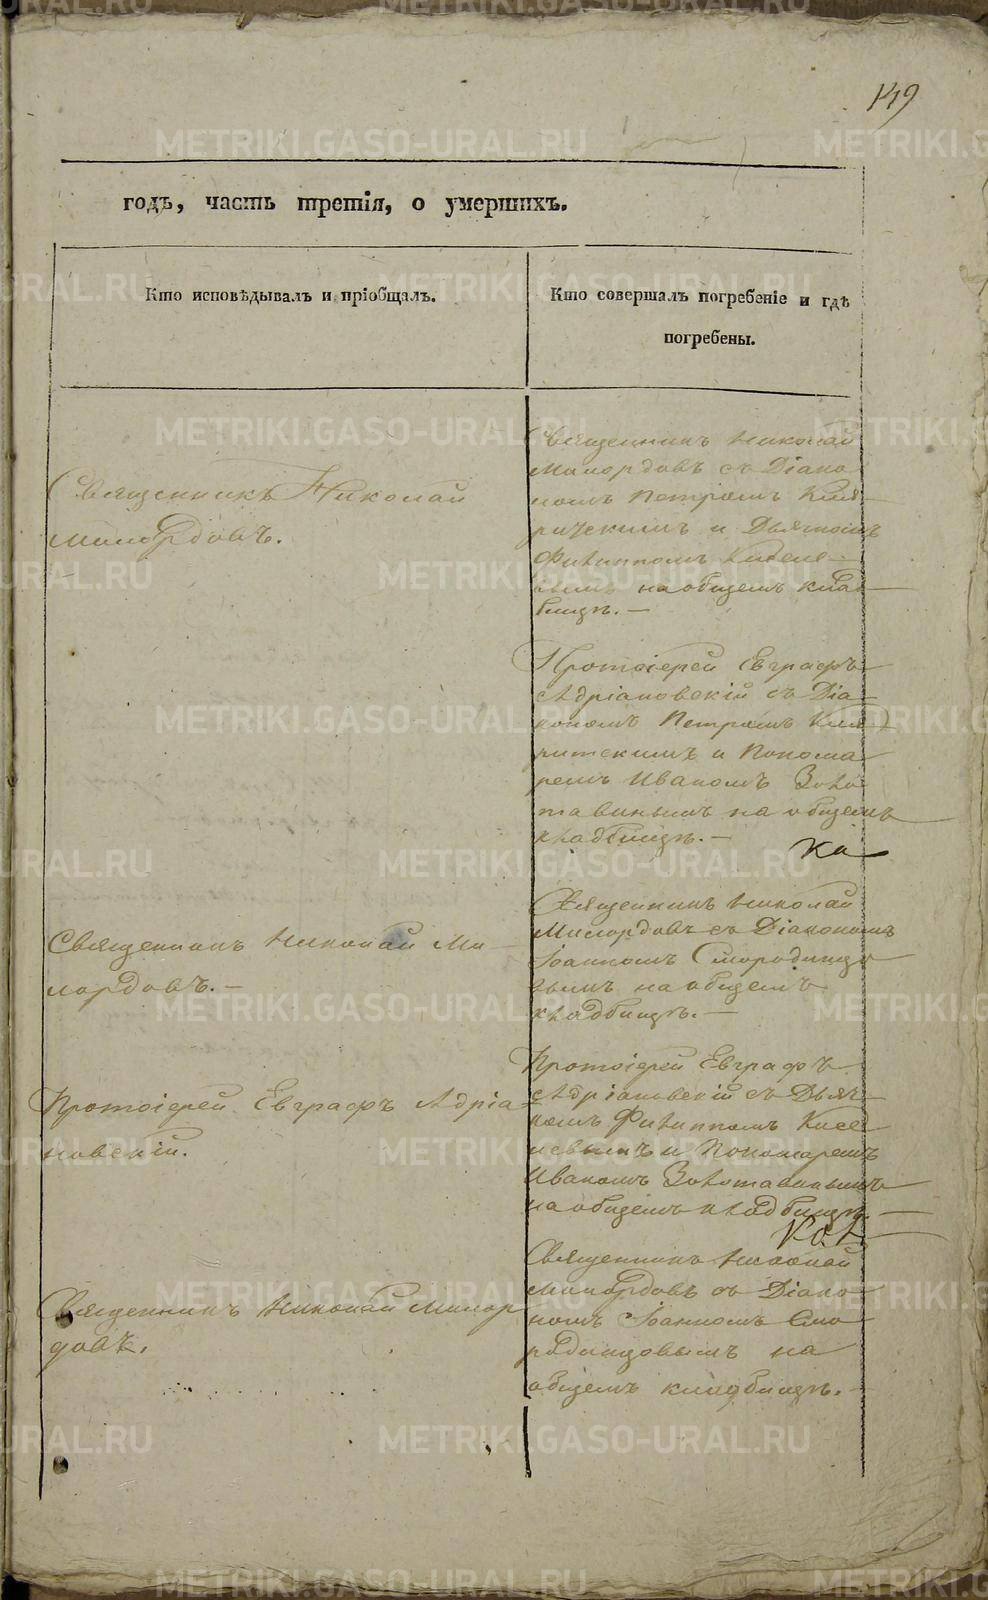 149
годъ, часть третія, о умершихъ.
Кто исповѣдывалъ и пріобщалъ.
Кто совершалъ погребеніе и гдѣ
погребены.
Священникъ Николай
Милордовъ.
Священникъ Николай
Милордовъ съ Діако
номъ Петромъ Кля
рицкимъ и Дьячкомъ
Филиппомъ Киселе
вымъ на общемъ клад
бищѣ.
Протоіерей Евграфъ
Адріановскій съ Діа
кономъ Петромъ Кля
ритскимъ и Понома
ремъ Иваномъ Золо
тавинымъ на общемъ
кладбищѣ.
Ка
Священникъ Николай Ми
лордовъ.
Священникъ Николай
Милордовъ съ Діакономъ
Іоанномъ Смородинцо
вымъ на общемъ
кладбищѣ.
Протоіерей Евграфъ Адріа
новскій.
Протоіерей Евграфъ
Адріановскій съ Дьяч
комъ Филиппомъ Кисе
левымъ и Пономаремъ
Иваномъ Золотавинымъ
на общемъ кладбищѣ.
Священникъ Николай Милор
довъ.
Священникъ Николай
Милордовъ съ Діако
номъ Іоанномъ Смо
родинцовымъ на
общемъ кладбищѣ.
METRIKI.GASO-URAL.RU